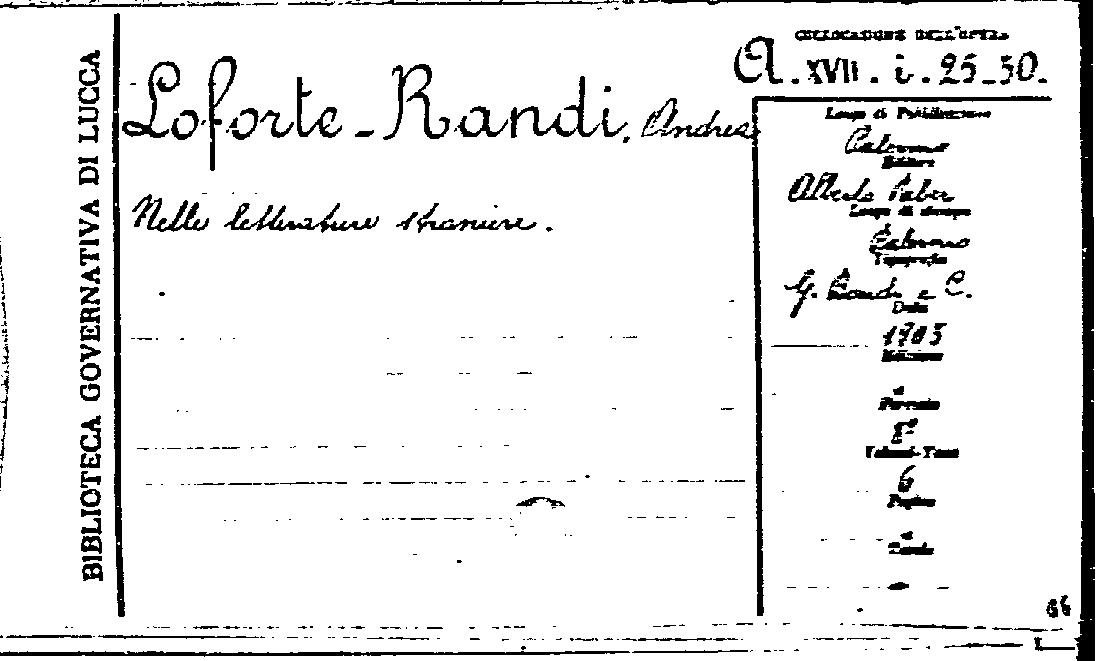 BIBLIOTECA GOVERNATIVA DI LUCCA
COLLOCAZIONE DELL'OPERA
A. XVII. i. 25-30.
Loforte-Randi, Andrea
Nelle letterature straniere.
Luogo di Pubblicazione
Palermo
Editore
Alberto Reber
Luogo di stampa
Palermo
Tipografia
G. e C.
Data
1903
Edizione
Formato
8º
Volumi-Tomi
6
Pagine
Tavole